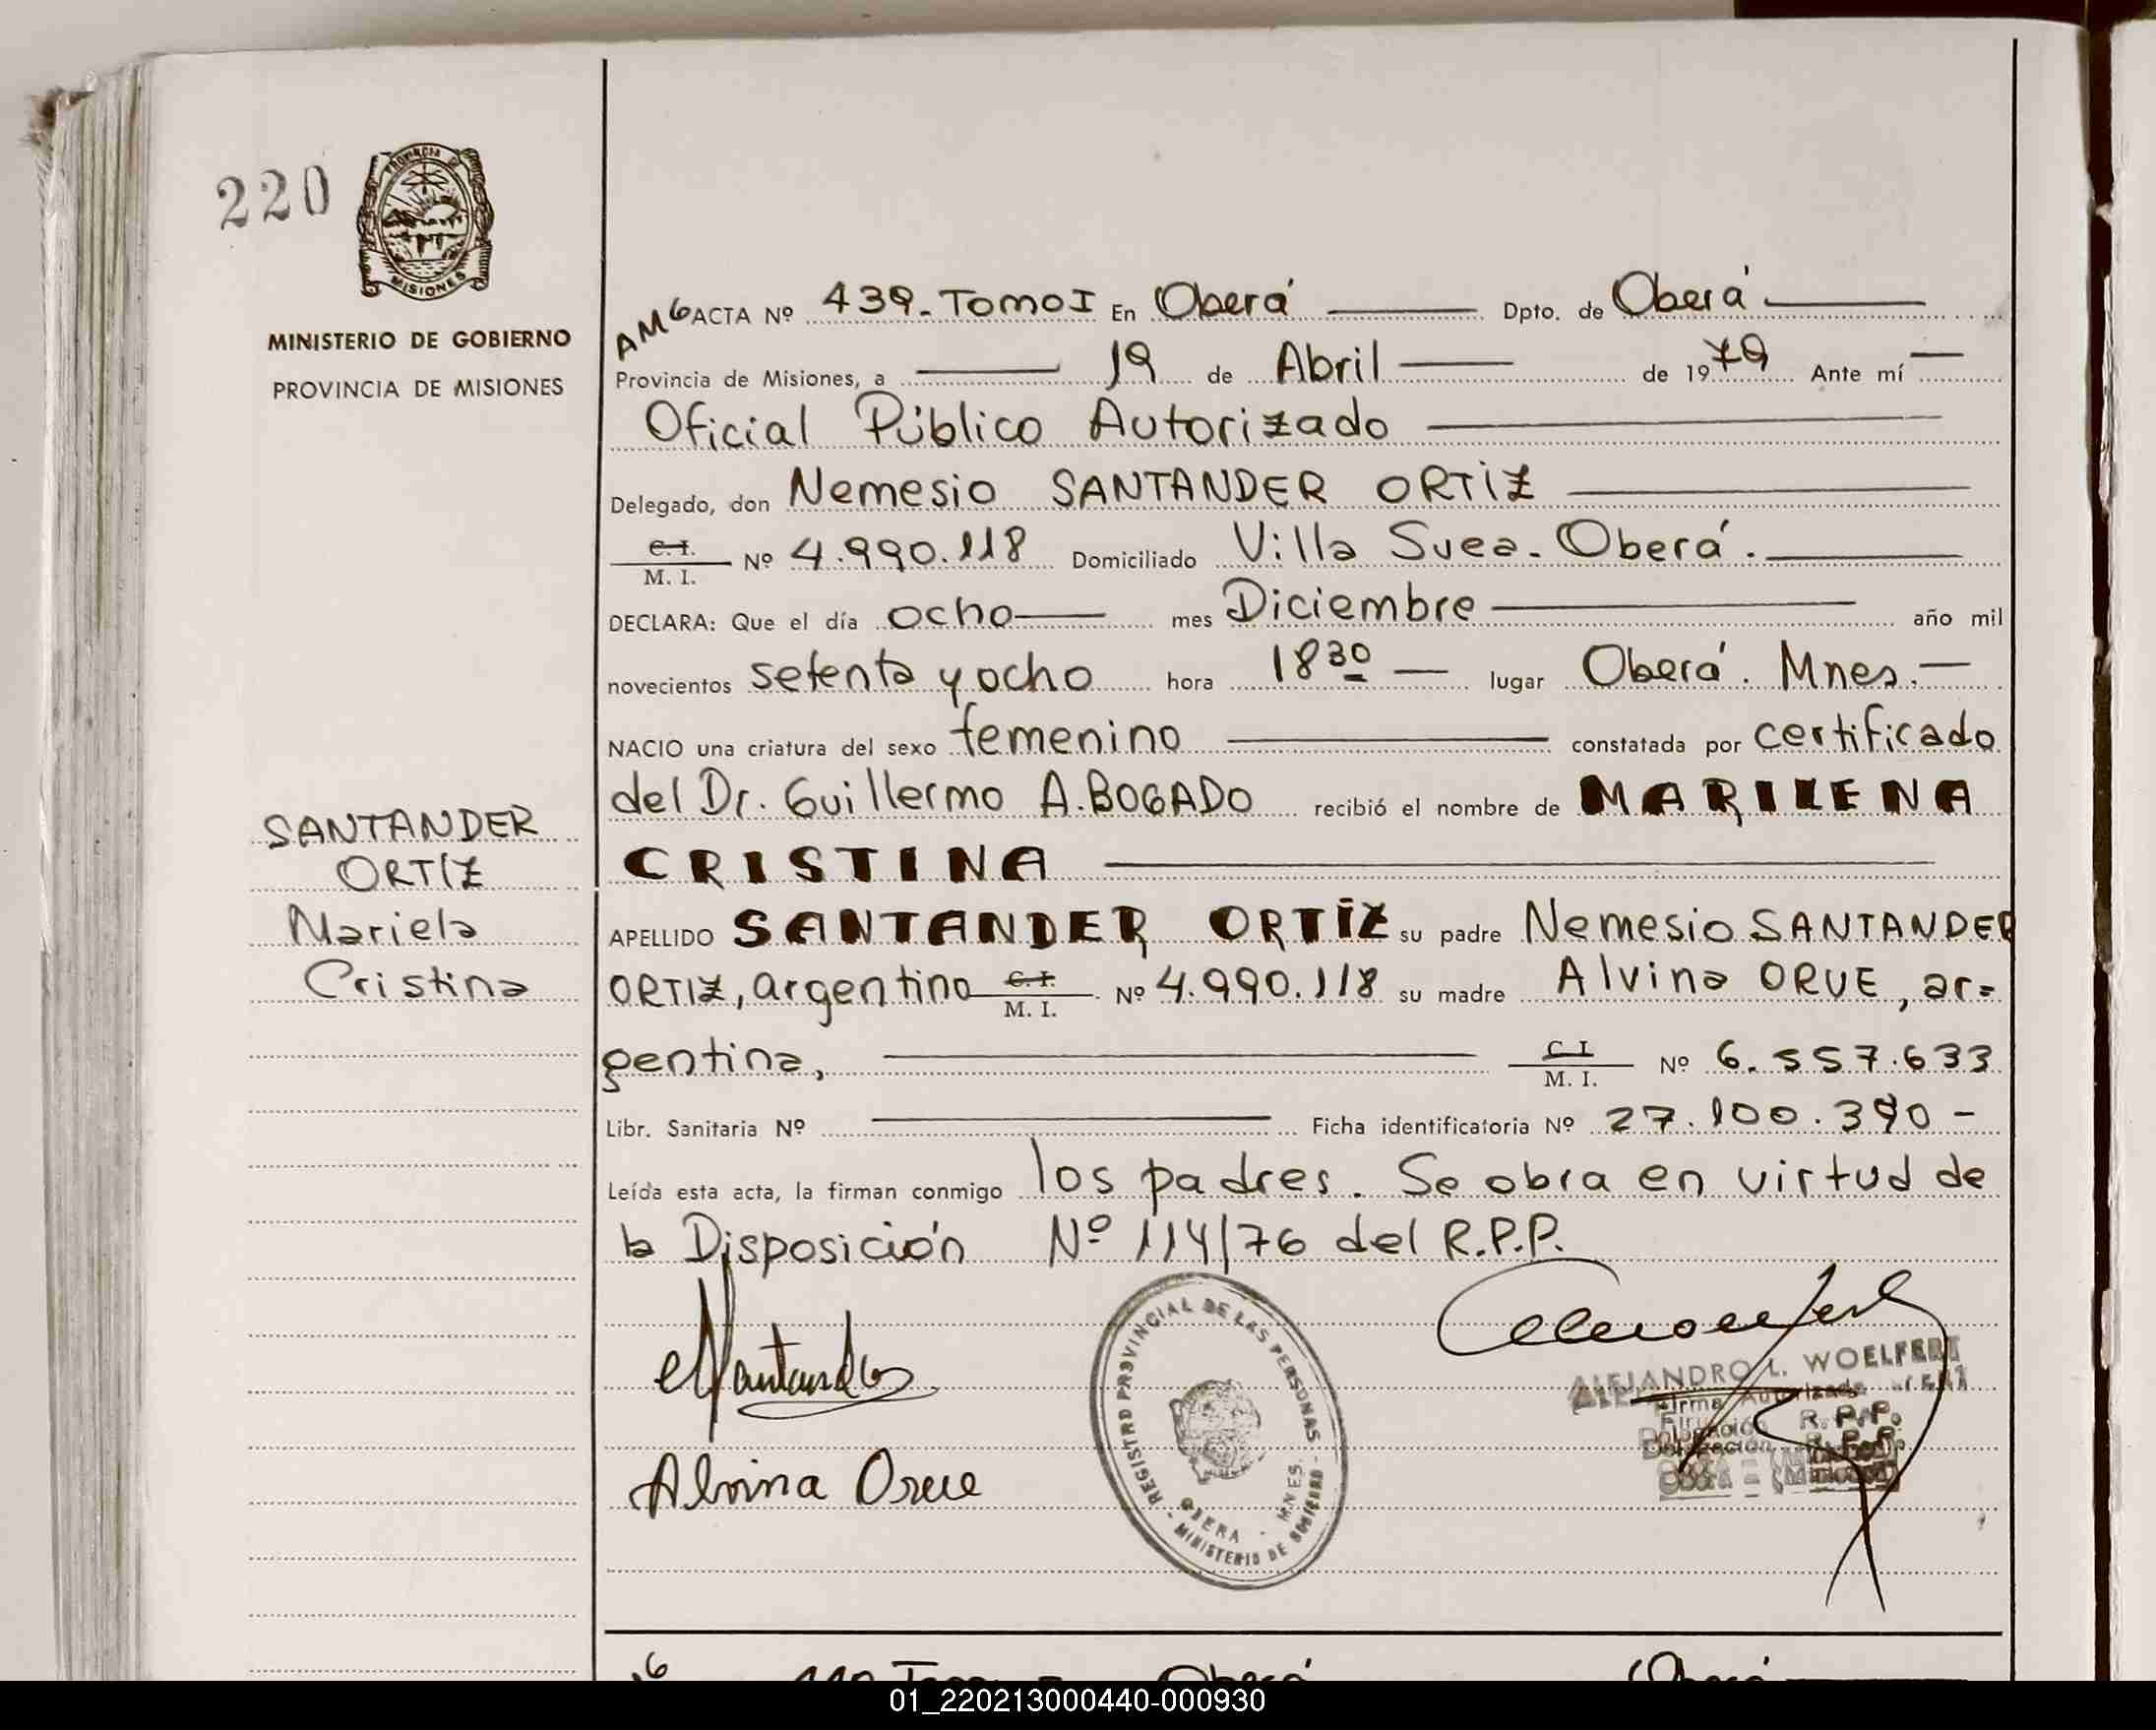 220
PROVINCIA DE
MISIONES
MINISTERIO DE GOBIERNO
PROVINCIA DE MISIONES
AMG ACTA Nº 439-TOMO I En Oberá Dpto. de Oberá
Provincia de Misiones, a 19 de Abril de 1979 Ante mí
Oficial Público Autorizado
Delegado, don Nemesio SANTANDER ORTIZ
C.I.
M. I. Nº 4.990.118 Domiciliado Villa Svea-Oberá.
DECLARA: Que el día ocho mes Diciembre año mil
novecientos setenta y ocho hora 18 30 lugar Oberá. Mnes.
NACIO una criatura del sexo femenino constatada por certificado
del Dr. Guillermo A. BOGADO recibió el nombre de MARILENA
CRISTINA
APELLIDO SANTANDER ORTÍZ su padre Nemesio SANTANDER
ORTIZ, argentino C.I. M. I. Nº 4.990.118 su madre Alvina ORUE, ar=
gentina, C I M. I. Nº 6.557.633
Libr. Sanitaria Nº Ficha identificatoria Nº 27.100.390-
Leída esta acta, la firman conmigo los padres. Se obra en virtud de
la Disposición Nº 114/76 del R.P.P.
SANTANDER
ORTÍZ
Mariela
Cristina
Alvina Orue
REGISTRO PROVINCIAL DE LAS PERSONAS
OBERA - MNES.
- MINISTERIO DE GOBIERNO -
ALEJANDRO L. WOELFERT
Firma Autorizada
Delegación R. P. P.
01_220213000440-000930